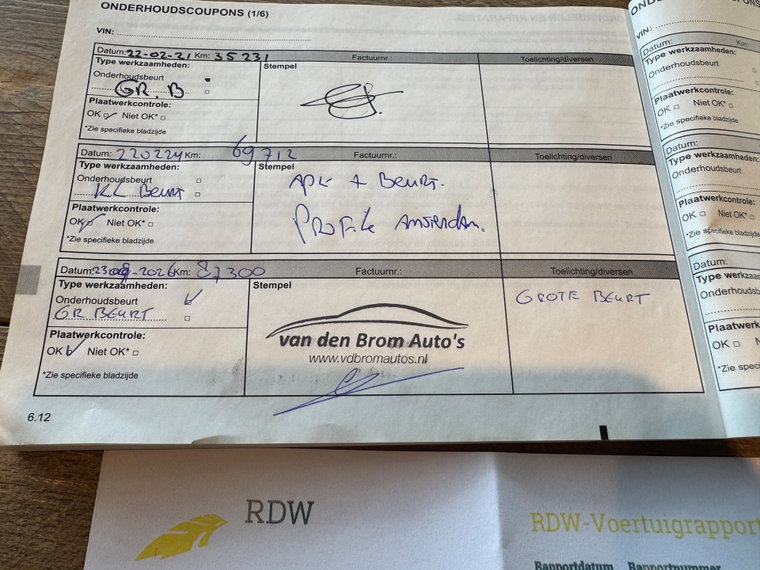 ONDERHOUDSCOUPONS (1/6)
VIN:
Datum: 22-02-21 Km: 35231 Factuurnr.: Toelichting/diversen
Type werkzaamheden: Stempel
Onderhoudsbeurt
GR. B
Plaatwerkcontrole:
OK Niet OK*
*Zie specifieke bladzijde
Datum: 220224 Km: 69712 Factuurnr.: Toelichting/diversen
Type werkzaamheden: Stempel
Onderhoudsbeurt APK + BEURT.
KL BEURT
Plaatwerkcontrole: PROFILE Amsterdam.
OK Niet OK*
*Zie specifieke bladzijde
Datum: 2026 Km: 87300 Factuurnr.: Toelichting/diversen
Type werkzaamheden: Stempel
Onderhoudsbeurt GROTE BEURT
GR BEURT
Plaatwerkcontrole: van den Brom Auto's
OK Niet OK* www.vdbromautos.nl
*Zie specifieke bladzijde
6.12
VIN:
Datum: Km:
Type werkzaamheden:
Onderhoudsbeurt
Plaatwerkcontrole:
OK Niet OK*
*Zie specifieke bladzijde
Datum:
Type werkzaamheden:
Onderhoudsbeurt
Plaatwerkcontrole:
OK Niet OK*
*Zie specifieke bladzijde
Datum:
Type
Plaatwerkcontrole:
OK
*Zie specifieke
RDW
RDW-Voertuigrapport
Rapportdatum Rapportnummer